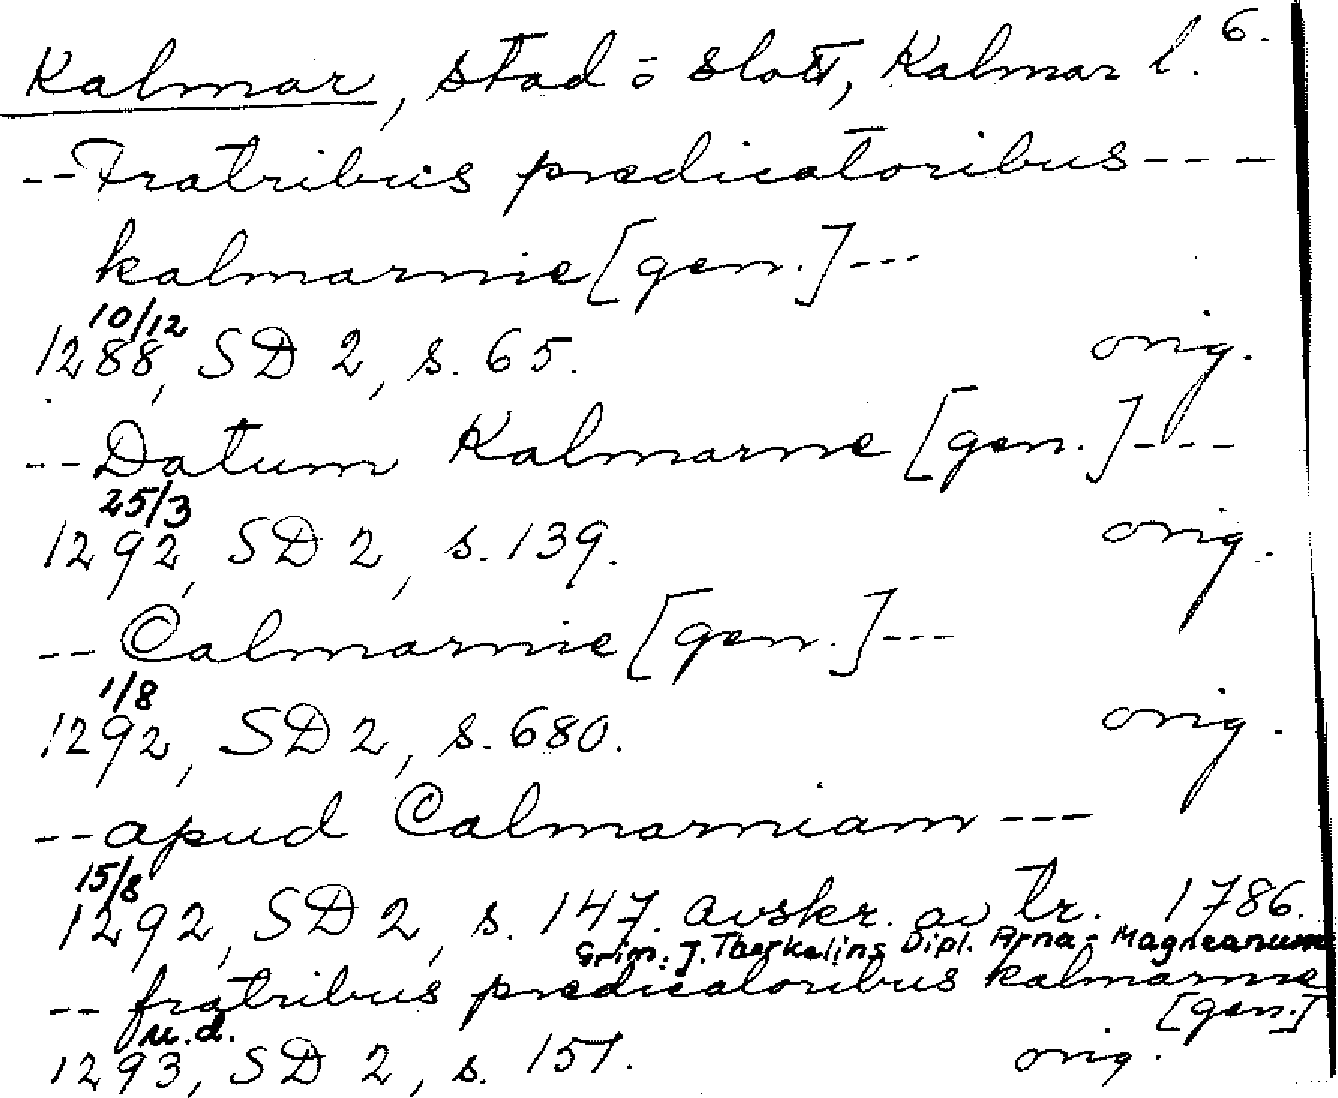 6.
Kalmar, stad o slott, Kalmar l.
--Fratribus predicatoribus---
kalmarnie [gen.]---
10/12
1288, SD 2, s. 65. orig.
--Datum Kalmarne [gen.]---
25/3
1292, SD 2, s. 139. orig.
--Calmarnie [gen.]---
1/8
1292, SD 2, s. 680. orig.
--apud Calmarniam---
15/8
1292, SD 2, s. 147. avskr. av tr. 1786.
Grim. J. Thorkelins Dipl. Arna-Magneanum
--fratribus predicatoribus kalmarnie
[gen.]
u.d.
1293, SD 2, s. 157. orig.